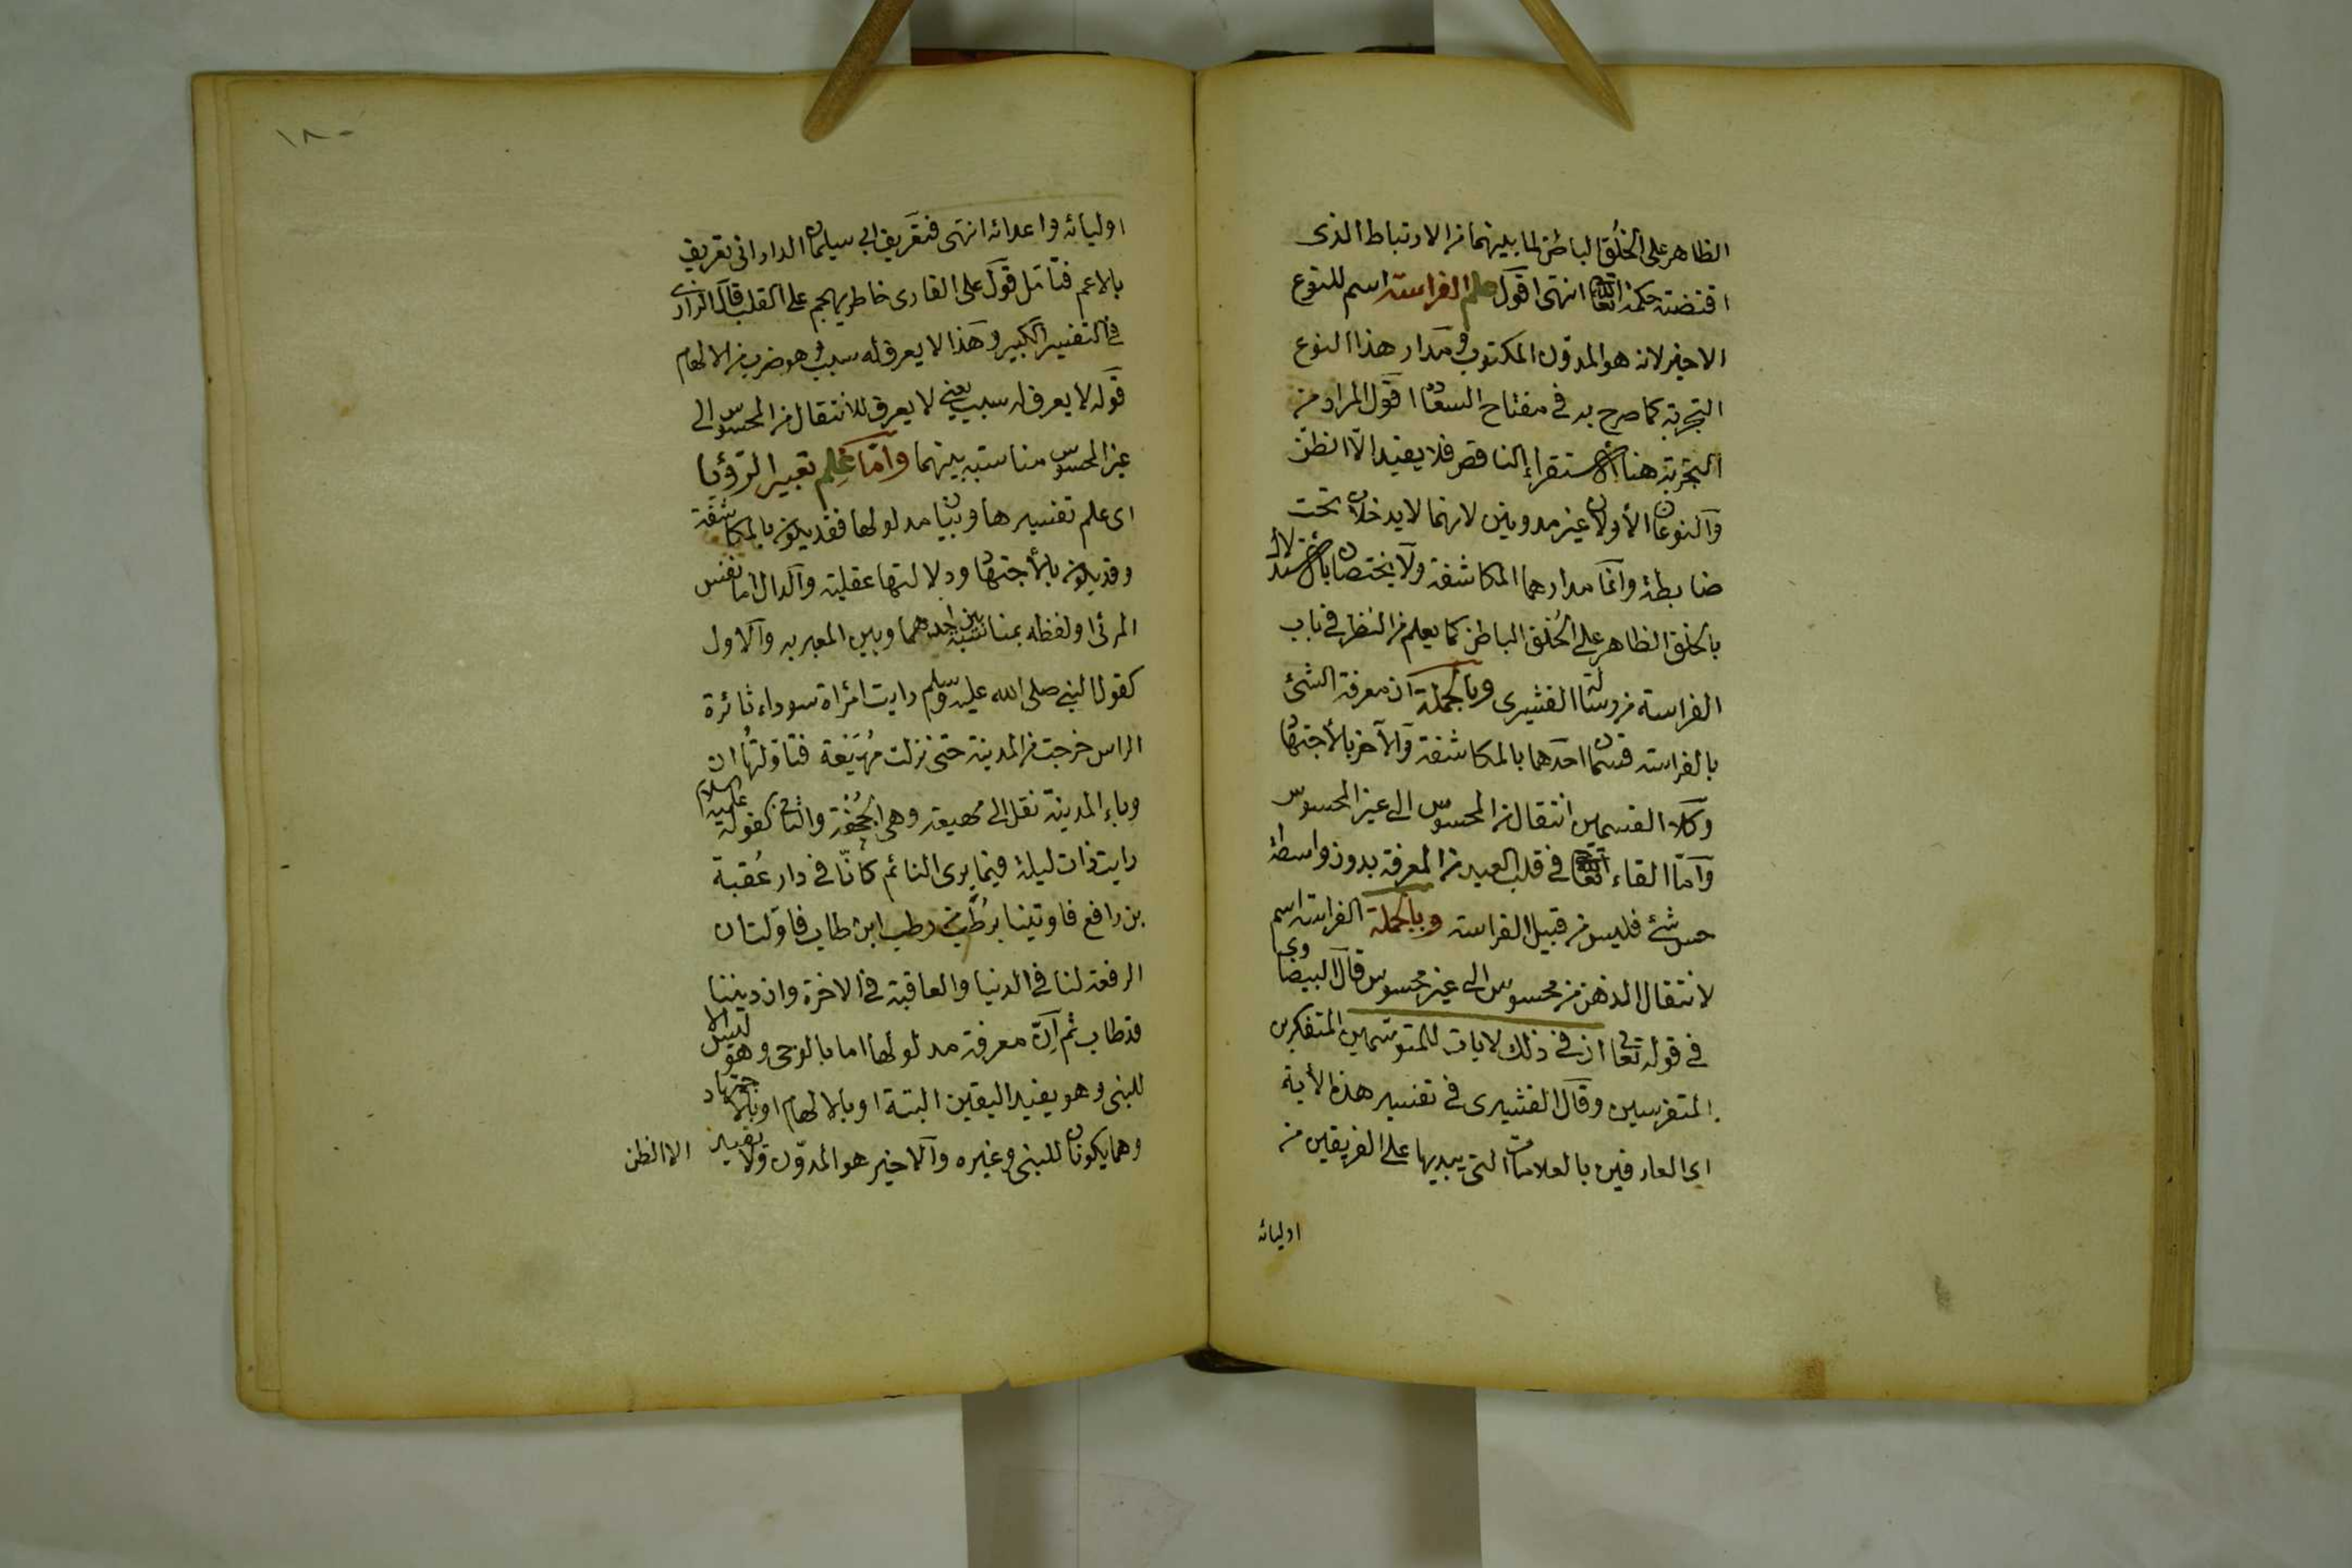 الظاهر على الخُلُق الباطن لما بينهما من الارتباط الذى
اقتضته حكمة الله تعا انتهى اقول علم الفراسة اسم للنوع
الاخير لانه هو المدون المكتوب ومدار هذا النوع
التجربة كما صرح به فى مفتاح السعا دة اقول المراد من
التجربة هنا الاستقراء الناقص فلا يفيد الّا الظن
والنوعان الأولان غير مدونين لانهما لا يدخلان تحت
ضابطة وانما مدارهما المكاشفة ولا يختصان بالاستدلال
بالخلق الظاهر على الخُلق الباطن كما يعلم من النظر فى باب
الفراسة من رسالة القشيرى وبالجملة ان معرفة الشئ
بالفراسة قسمان احدهما بالمكاشفة والآخر بالأجتهاد
وكلا القسمين انتقال من المحسوس الى غير المحسوس
وامّا القاء الله تعا فى قلب العبد من المعرفة بدون واسطة
حس شئ فليس من قبيل الفراسة وبالجملة الفراسة اسم
لانتقال الذهن من محسوس الى غير محسوس قال البيضاوى
فى قوله تعالى ان فى ذلك لايات للمتوسّمين المتفكرين
المتفرسين وقال القشيرى فى تفسير هذه الأية
اى العارفين بالعلامات التى يبديها على الفريقين من
اوليائه
١٨٠
اوليائه واعدائه انتهى فتعريف ابى سيلمان الدارانى تعريف
بالاعم فتأمل قول على القارى خاطر يهجم على القلب قال الرازى
فى التفسير الكبير وهذا لا يعرف له سبب وهو ضرب من الالهام
قوله لا يعرف له سبب يعنى لا يعرف للانتقال من المحسوس الى
غير المحسوس مناسبة بينهما وامّا عِلم تعبير الرّؤيا
اى علم تفسيرها وبيان مدلولها فقد يكون بالمكاشفة
وقد يكون بالأجتهاد ودلالتها عقلية والدال اما نفس
المرئى او لفظه بمناسبة بين احدهما وبين المعبر به والاول
كقول النبى صلى الله عليه وسلم رايت امرأة سوداء ثائرة
الراس خرجت من المدينة حتى نزلت مُهَيْعة فتاولتُها ان
وباء المدينة نقل الى مهيعة وهى الجُحْفة والثانى كقوله عليه السلام
رايت ذات ليلة فيما يرى النائم كأنّا فى دار عُقبة
بن رافع فاوتينا برُطَب من رطب ابن طاب فاوّلت ان
الرفعة لنا فى الدنيا والعاقبة فى الاخرة وان ديننا
قد طاب ثم انّ معرفة مدلولها اما بالوحى وهو ليس الا
للنبى وهو يفيد اليقين البتة او بالالهام او بالاجتهاد
وهما يكونان للنبى وغيره والاخير هو المدوّن ولا يفيد الا الظن